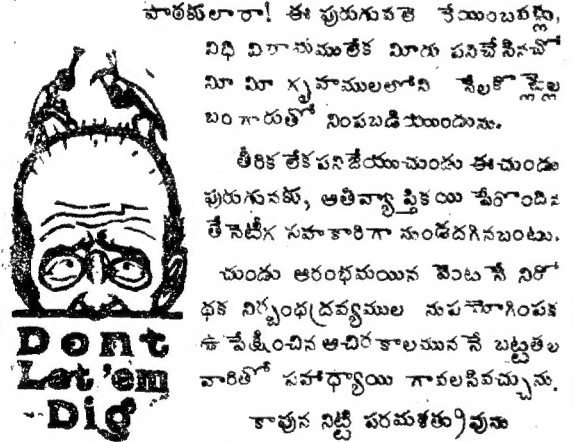 పాఠకులారా! ఈ పురుగువలె రేయింబవళ్లు,
నిధి విరామములేక మీరు పనిచేసినచో
మీ మీ గృహములలోని నేలకొళ్లెల్ల
బంగారుతో నింపబడియుండును.
తీరిక లేక పనిజేయుచుండు ఈ చుండు
పురుగునకు, అతివ్యాప్తికయి పేరొందిన
తేనెటీగ సహకారిగా నుండదగినబంటు.
చుండు ఆరంభమయిన వెంటనే నిరో
థక నిర్బంధద్రవ్యముల నుపయోగింపక
ఉపేక్షించిన ఆచిరకాలముననే బట్టతల
వారితో సహాధ్యాయి గావలసివచ్చును.
కావున నిట్టి పరమశత్రువును
Dont
Let'em
Dig